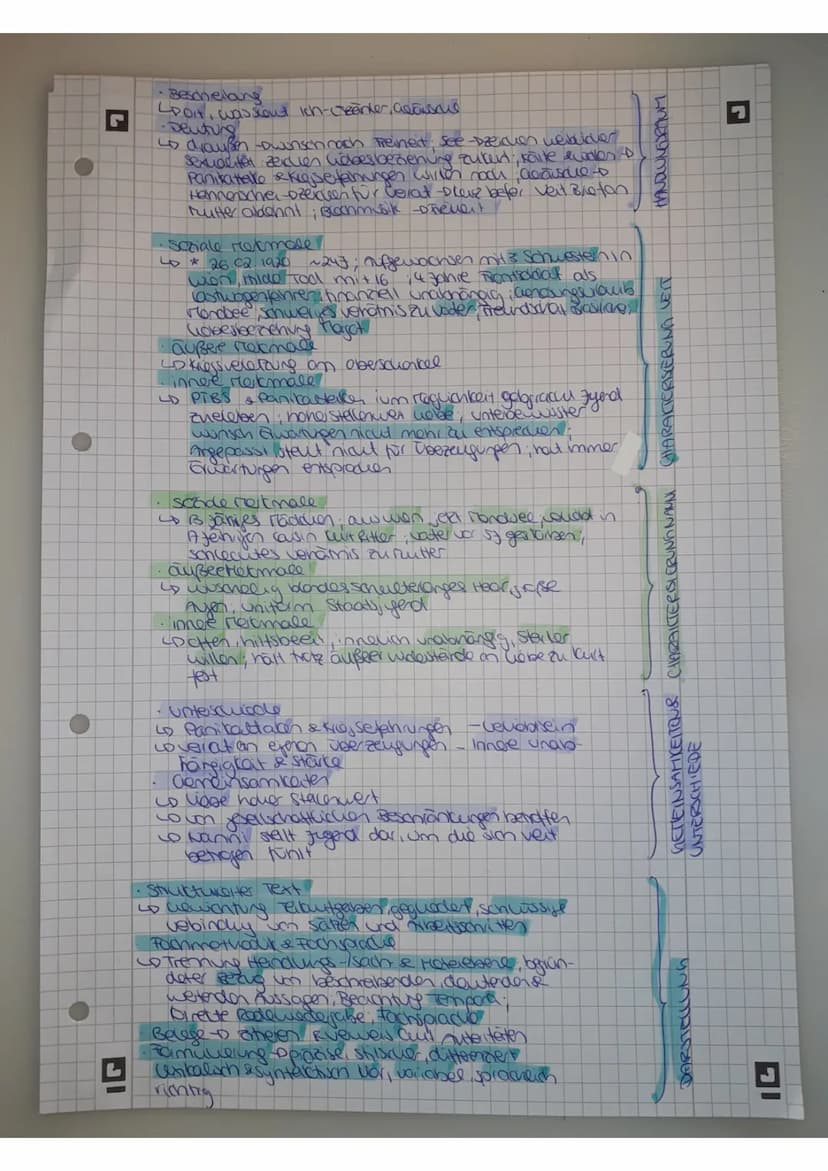 · Beschreibung
↳ Ort, was saut Ich-Erzähler, Geräusche
· Deutung
↳ draußen → Wunsch nach Freiheit, See → Zeichen
Zeichen Liebesbeziehung zu Kurt, Kälte →
Panikattacke & Kriegserfahrungen noch, Geräusche →
→ Zeichen für Verrat → Veit
Mutter ; Blasmusik →
HANDLUNGSRAUM
· Soziale Merkmale
↳ * 26.02.1920 ~24J; Aufgewachsen mit 3 Schwestern in
Wien, Hilde Tod mit 16, 4 Jahre Frontsoldat als
Lastwagenfahrer, finanziell unabhängig, Genesungsurlaub
Mondsee, schwieriges Verhältnis zu Vater, Freundschaft Brasilianer,
Liebesbeziehung Margot
· äußere Merkmale
↳ Kriegsverletzung am Oberschenkel
· innere Merkmale
↳ PTBS & Panikattacken, Unmöglichkeit Jugend
zu erleben; hoher Stellenwert Liebe, unterbewusster
Wunsch Erwartungen nicht mehr zu entsprechen;
Angepasst, steht nicht für Überzeugungen, hat immer
Erwartungen entsprochen
CHARAKTERISIERUNG VEIT
· soziale Merkmale
↳ 13 jähriges Mädchen; aus Wien, jetzt Mondsee, verliebt in
jährigen Cousin Kurt Ritler, Vater vor 5J gestorben,
schlechtes Verhältnis zu Mutter
· äußere Merkmale
↳ wuschelig blondes schulterlanges Haar, große
Augen, Uniform Staatsjugend
· innere Merkmale
↳ offen, hilfsbereit, innerlich unabhängig, starker
Willen, hält trotz äußerer Widerstände an Liebe zu Kurt
fest
CHARAKTERISIERUNG NANNI
· Unterschiede
↳ Panikattacken & Kriegserfahrungen – Verliebtsein
↳ Verrat an eigenen Überzeugungen – Innere Unab-
hängigkeit & Stärke
· Gemeinsamkeiten
↳ Liebe hoher Stellenwert
↳ von gesellschaftlichen Beschränkungen betroffen
↳ Nanni stellt Jugend dar, um die sich Veit
betrogen fühlt
GEMEINSAMKEITEN &
UNTERSCHIEDE
· Strukturierter Text
↳ Gewichtung Teilaufgaben, gegliedert, schlüssige
Verbindung von Sätzen und Arbeitsschritten
Fachmethodik & Fachsprache
↳ Trennung Handlungs-/Sach & Metaebene, begrün-
deter Bezug von beschreibenden, deutenden &
wertenden Aussagen, Beachtung Tempora,
Direkte Redewiedergabe, Fachsprache
Belege → zitieren & Verweis auf Textstellen
· Formulierung → präzise, stilsicher, differenziert
lexikalisch & syntaktisch klar, variabel, sprachlich
richtig
DARSTELLUNG